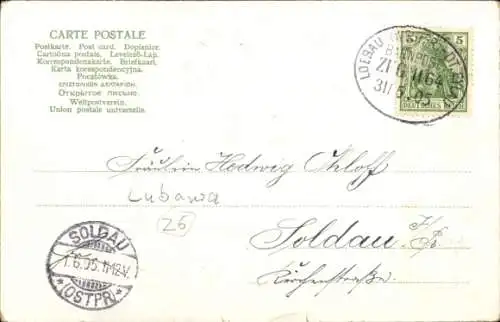 CARTE POSTALE
Postkarte. Post card. Dopisnice.
Cartolina postale. Levelező-Lap.
Korrespondenzkarte. Briefkaart.
Karta korespondencyjna.
Pocztówka.
ΕΠΙΣΤΟΛΙΚΟΝ ΔΕΛΤΑΡΙΟΝ.
Открытое письмо.
Weltpostverein.
Union postale universelle.
LOEBAU
BAHNPOST
ZUG 1164
31/5.05
5
DEUTSCHES REICH
Fräulein Hedwig
Lubawa
26
Soldau
Kirchenstraße.
SOLDAU
1.6.05.11-12V.
*(OSTPR.)*